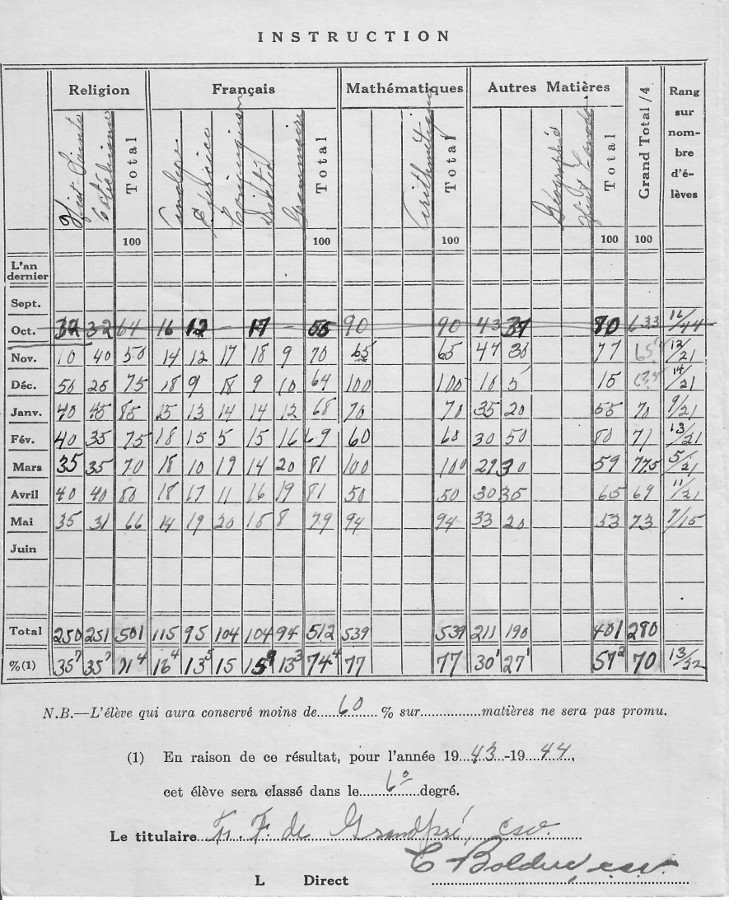 INSTRUCTION
Religion Français Mathématiques Autres Matières Grand Total/4 Rang sur nom-bre d'é-lèves
Hist Sainte Catéchisme Total Analyse Conjugaison Dictée Grammaire Total Arithmétique Total Géographie Hist Canada Total
100 100 100 100 100
L'an dernier
Sept.
Oct. 32 32 64 16 12 - 17 - 55 90 90 43 37 80 633 16/44
Nov. 10 40 50 14 12 17 18 9 70 65 65 47 30 77 65 12/21
Déc. 50 25 75 18 9 18 9 10 64 100 100 10 5 15 14/21
Janv. 40 45 85 15 13 14 14 12 68 70 70 35 20 55 70 9/21
Fév. 40 35 75 18 15 5 15 16 69 60 60 30 50 80 71 13/21
Mars 35 35 70 18 10 19 14 20 81 100 100 29 30 59 77.5 5/21
Avril 40 40 80 18 17 11 16 19 81 50 50 30 35 65 69 11/21
Mai 35 31 66 14 19 20 18 8 79 94 94 33 20 53 73 7/15
Juin
Total 250 251 501 115 95 104 104 94 512 539 539 211 190 401 290
%(1) 35⁷ 35⁷ 71⁴ 16⁴ 13⁵ 15 15⁹ 13³ 74⁴ 77 77 30¹ 27¹ 57² 70 13/22
N.B.—L'élève qui aura conservé moins de 60 % sur matières ne sera pas promu.
(1) En raison de ce résultat, pour l'année 1943-1944,
cet élève sera classé dans le 6° degré.
Le titulaire Fr. F. de Grandpré, csv.
C Bolduc, csv.
L Direct